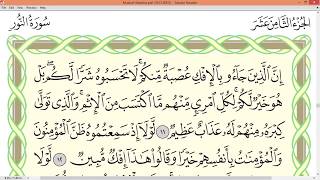 (SECURED) - Adobe Reader
الجزء الثامن عشر
سورة النور
إِنَّ ٱلَّذِينَ جَآءُو بِٱلْإِفْكِ عُصْبَةٌ مِّنكُمْ لَا تَحْسَبُوهُ شَرًّا لَّكُم بَلْ
هُوَ خَيْرٌ لَّكُمْ لِكُلِّ ٱمْرِئٍ مِّنْهُم مَّا ٱكْتَسَبَ مِنَ ٱلْإِثْمِ وَٱلَّذِى تَوَلَّىٰ
كِبْرَهُۥ مِنْهُمْ لَهُۥ عَذَابٌ عَظِيمٌ ١١ لَّوْلَآ إِذْ سَمِعْتُمُوهُ ظَنَّ ٱلْمُؤْمِنُونَ
وَٱلْمُؤْمِنَٰتُ بِأَنفُسِهِمْ خَيْرًا وَقَالُوا۟ هَٰذَآ إِفْكٌ مُّبِينٌ ١٢ لَّوْلَا